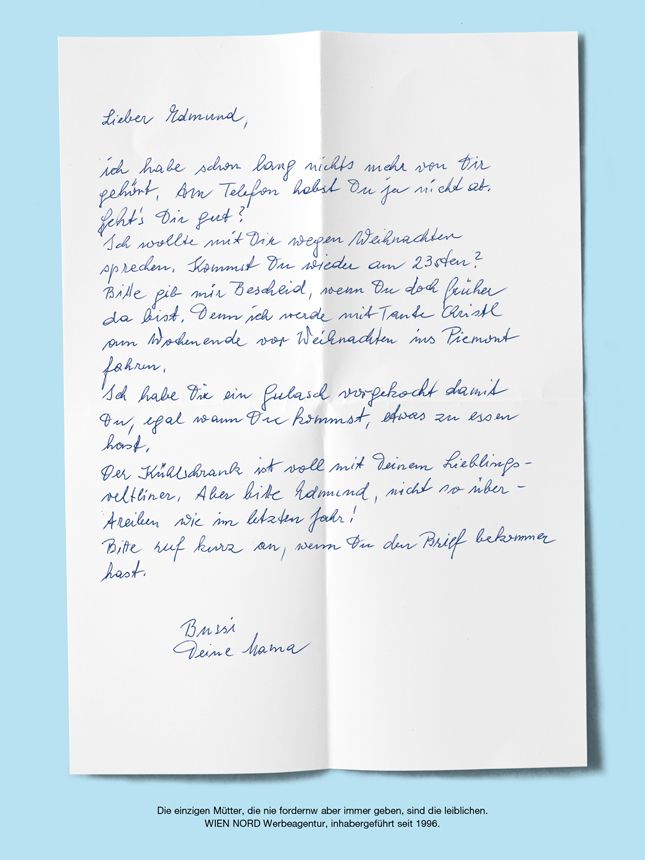 Lieber Edmund,
ich habe schon lang nichts mehr von Dir
gehört. Am Telefon habst Du ja nicht ab.
Geht's Dir gut?
Ich wollte mit Dir wegen Weihnachten
sprechen. Kommst Du wieder am 23sten?
Bitte gib mir Bescheid, wenn Du doch früher
da bist. Denn ich werde mit Tante Christl
am Wochenende vor Weihnachten ins Piemont
fahren.
Ich habe Dir ein Gulasch vorgekocht damit
Du, egal wann Du kommst, etwas zu essen
hast.
Der Kühlschrank ist voll mit Deinem Lieblings-
veltliner. Aber bitte Edmund, nicht so über-
treiben wie im letzten Jahr!
Bitte ruf kurz an, wenn Du den Brief bekommen
hast.
Bussi
Deine Mama
Die einzigen Mütter, die nie fordernw aber immer geben, sind die leiblichen.
WIEN NORD Werbeagentur, inhabergeführt seit 1996.